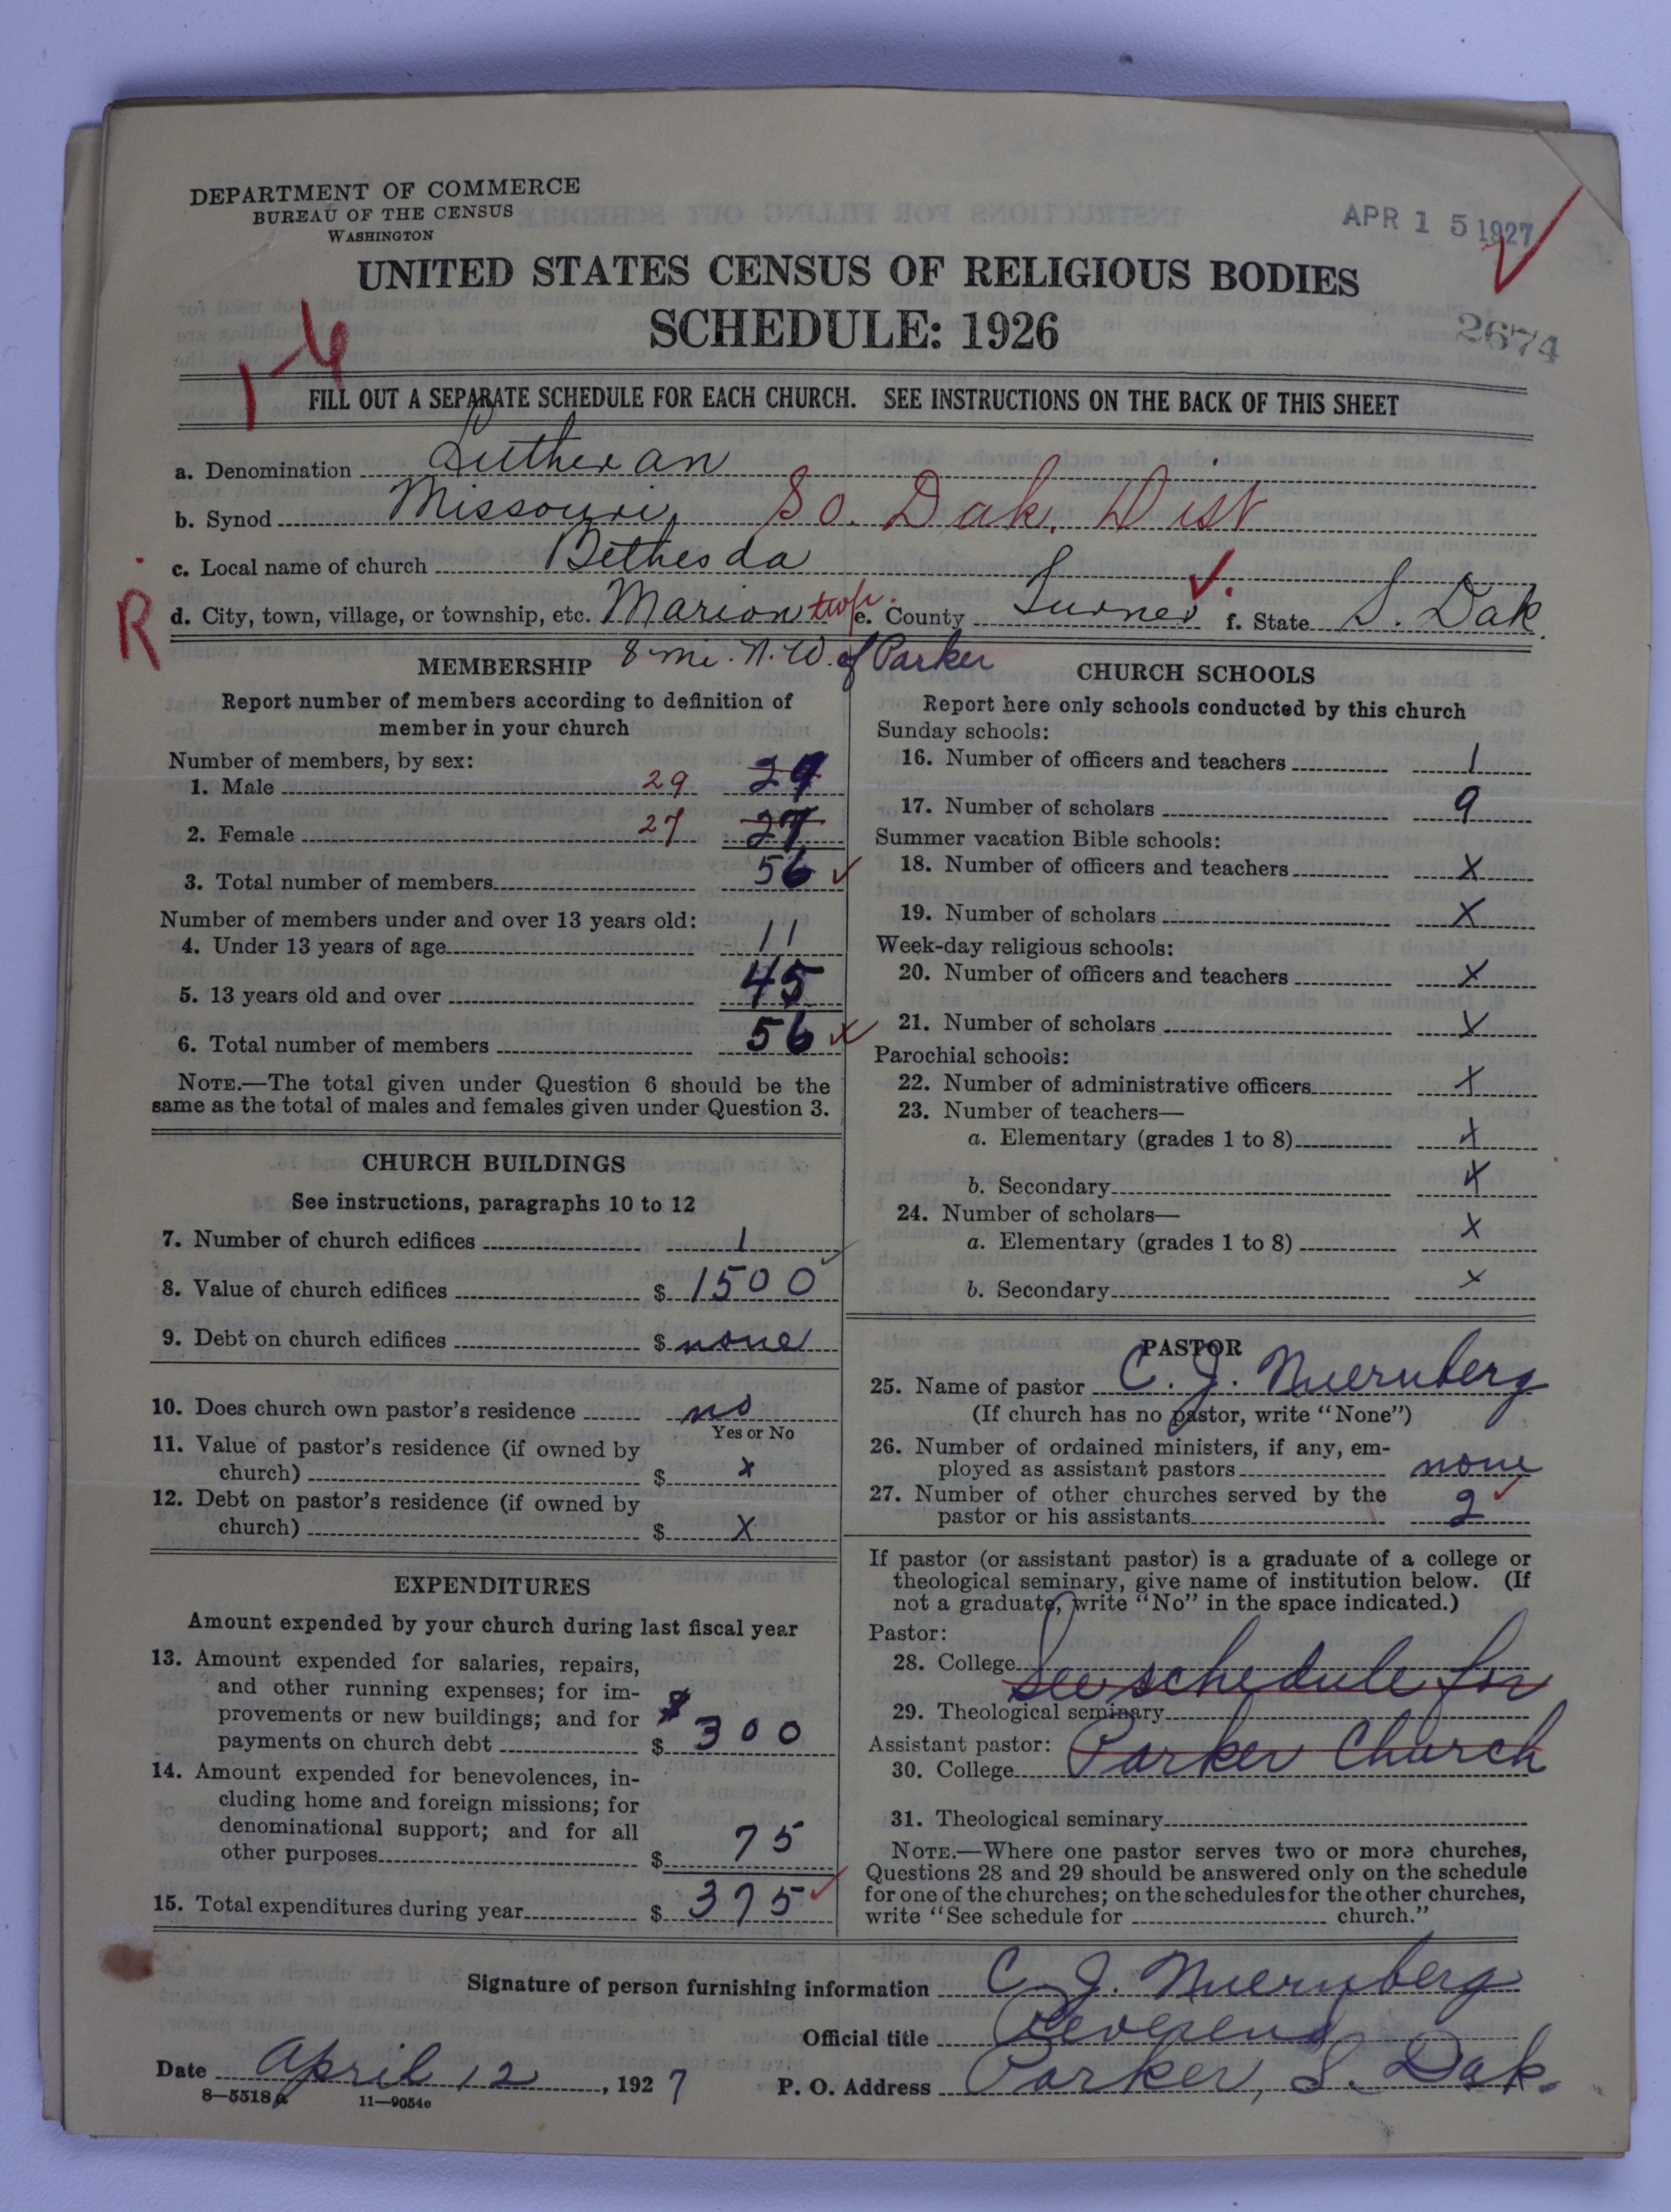 DEPARTMENT OF COMMERCE
BUREAU OF THE CENSUS
WASHINGTON
APR 15 1927
UNITED STATES CENSUS OF RELIGIOUS BODIES
SCHEDULE: 1926
2674
FILL OUT A SEPARATE SCHEDULE FOR EACH CHURCH. SEE INSTRUCTIONS ON THE BACK OF THIS SHEET
a. Denomination Lutheran
b. Synod Missouri, So. Dak. Dist
c. Local name of church Bethesda
R
d. City, town, village, or township, etc. Marion twp. e. County Turner f. State S. Dak.
8 mi. N.W. of Parker
MEMBERSHIP
Report number of members according to definition of
member in your church
Number of members, by sex:
1. Male 29 29
2. Female 27 27
3. Total number of members 56
Number of members under and over 13 years old:
4. Under 13 years of age 11
5. 13 years old and over 45
6. Total number of members 56
NOTE.—The total given under Question 6 should be the
same as the total of males and females given under Question 3.
CHURCH BUILDINGS
See instructions, paragraphs 10 to 12
7. Number of church edifices 1
8. Value of church edifices $ 1500
9. Debt on church edifices $ none
10. Does church own pastor's residence no
Yes or No
11. Value of pastor's residence (if owned by
church) $ x
12. Debt on pastor's residence (if owned by
church) $ X
EXPENDITURES
Amount expended by your church during last fiscal year
13. Amount expended for salaries, repairs,
and other running expenses; for im-
provements or new buildings; and for
payments on church debt $ 300
14. Amount expended for benevolences, in-
cluding home and foreign missions; for
denominational support; and for all
other purposes $ 75
15. Total expenditures during year $ 375
CHURCH SCHOOLS
Report here only schools conducted by this church
Sunday schools:
16. Number of officers and teachers 1
17. Number of scholars 9
Summer vacation Bible schools:
18. Number of officers and teachers X
19. Number of scholars X
Week-day religious schools:
20. Number of officers and teachers X
21. Number of scholars X
Parochial schools:
22. Number of administrative officers X
23. Number of teachers—
a. Elementary (grades 1 to 8) X
b. Secondary X
24. Number of scholars—
a. Elementary (grades 1 to 8) X
b. Secondary X
PASTOR
25. Name of pastor C. J. Nuernberg
(If church has no pastor, write "None")
26. Number of ordained ministers, if any, em-
ployed as assistant pastors none
27. Number of other churches served by the
pastor or his assistants 2
If pastor (or assistant pastor) is a graduate of a college or
theological seminary, give name of institution below. (If
not a graduate, write "No" in the space indicated.)
Pastor:
28. College See schedule for
29. Theological seminary
Assistant pastor: Parker Church
30. College
31. Theological seminary
NOTE.—Where one pastor serves two or more churches,
Questions 28 and 29 should be answered only on the schedule
for one of the churches; on the schedules for the other churches,
write "See schedule for church."
Signature of person furnishing information C. J. Nuernberg
Official title Reverend
Date April 12, 1927 P. O. Address Parker, S. Dak.
8—5518a 11—9054c